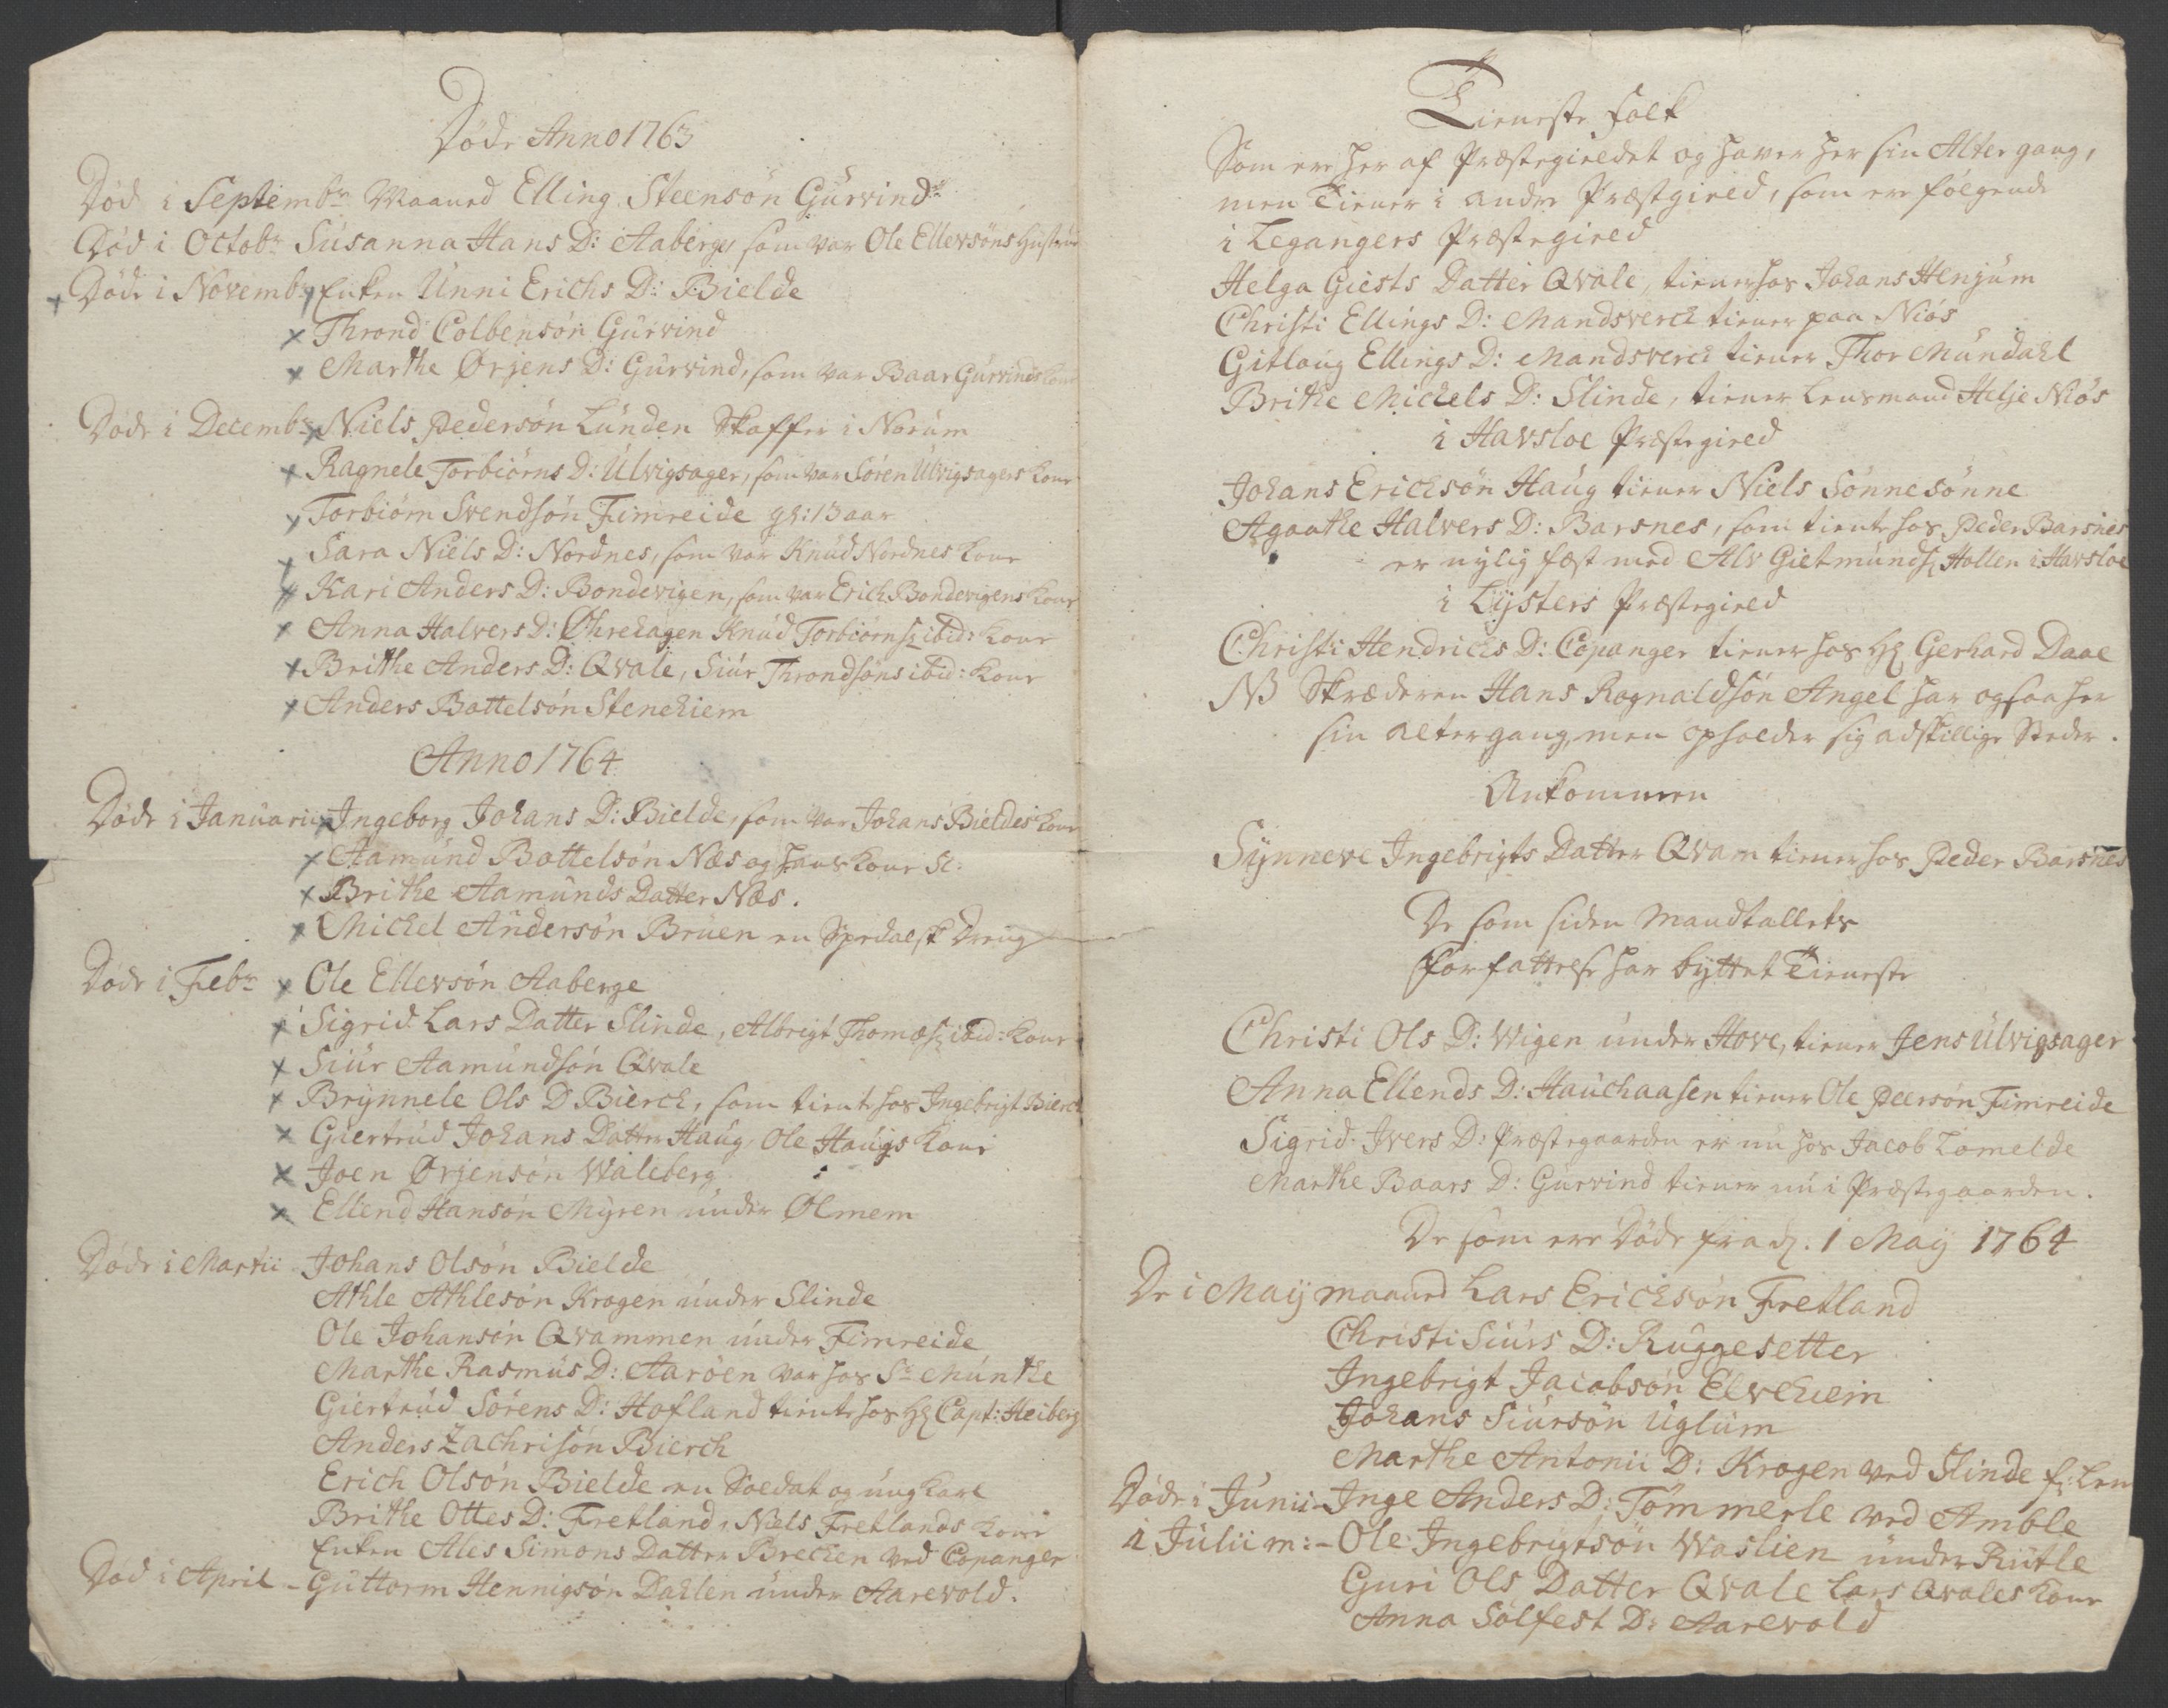 Døde Anno 1763
Død i Septembr Maaned Elling Steensøn Gurvind
Død i Octobr Susanna Hans D: Aaberge, som var Ole Ellevsøns Hustrue
Døde i Novembr Enken Unni Erichs D: Bielde
Thrond Colbensøn Gurvind
Marthe Ørjens D: Gurvind, som var Baar Gurvinds kone
Døde i Decembr Niels Pedersøn Lunden Skaffer i Norum
Ragnele Torbiørns D: Ulvigsager, som var Søren Ulvigsagers kone
Torbiørn Svendsøn Fimreide gl: 13 aar
Sara Niels D: Nordnes, som var Knud Nordnes kone
Kari Anders D: Bondevigen, som var Erich Bondevigens kone
Anna Halvers D: Øhrehagen Knud Torbiørns. ibid: kone
Brithe Anders D: Qvale, Siur Throndsøns ibid: kone
Anders Bottelsøn Stenehiem
Anno 1764
Døde i Januarii Ingeborg Johans D: Bielde, som var Johans Bieldes kone
Aamund Bottelsøn Næs og hans kone Sl:
Brithe Aamunds Datter Næs.
Michel Andersøn Bruen en Spedalsk Dreng
Døde i Febr Ole Ellevsøn Aaberge
Sigrid Lars Datter Slinde, Albrigt Thomæs. ibid: kone
Siur Aamundsøn Qvale
Brynnele Ols D Bierck, som tiente hos Ingebrigt Bierck
Giertrud Johans Datter Haug, Ole Haugs kone
Joen Ørjensøn Waleberg
Ellend Hansøn Myren under Ølmem
Døde i Martii Johans Olsøn Bielde
Athle Athlesøn Krogen under Slinde
Ole Johansøn Qvammen under Fimreide
Marthe Rasmus D: Aarøen var hos Sr Munthe
Giertrud Sørens D: Hofland tiente hos Hr Capt: Heiberg
Anders Zachrisøn Bierch
Erich Olsøn Bielde en Soldat og ung Karl
Brithe Ottes D: Fretland, Niels Fretlands kone
Enken Ales Simons Datter Brecken ved Copanger
Død i April - Guttorm Hennigsøn Dahlen under Aarevold.
Tieneste Folk
Som ere her af Præstegieldet og haver her sin Altergang,
men Tiener i andre Præstgield, som ere følgende
i Legangers Præstegield
Helga Giests Datter Qvale, tiener hos Johans Henjum
Christi Ellings D: Mandsverck tiener paa Niøs
Gitlaug Ellings D: Mandsverck tiener Thor Mundahl
Brithe Michels D: Slinde, tiener Lensmand Helje Niøs
i Havsloe Præstegield
Johans Erichsøn Haug tiener Niels Sønnesønne
Agaathe Halvers D: Barsnes, som tiente hos Peder Barsnes
er nylig fæst med Alv Gietmunds. Hollen i Havsloe
i Lysters Præstegield
Christi Hendrichs D: Copanger tiener hos Hr Gerhard Daae
NB Skræderen Hans Rognaldsøn Angel har ogsaa her
sin altergang, men opholder sig adskillige Steder.
Ankommen
Synneve Ingebrigts Datter Qvam tiener hos Peder Barsnes
De som siden Mandtallets
Forfattelse har byttet Tieneste
Christi Ols D: Wigen under Hove, tiener Jens Ulvigsager
Anna Ellends D: Hauchaasen tiener Ole Peersøn Fimreide
Sigrid Ivers D: Præstegaarden er nu hos Jacob Lomelde
Marthe Baars D: Gurvind tiener nu i Præstegaarden.
De som ere Døde fra d. 1 May 1764
De i May maaned Lars Erichsøn Fretland
Christi Siurs D: Ruggesetter
Ingebrigt Jacobsøn Elvehiem
Johans Siursøn Uglum
Marthe Antonii D: Krogen ved Slinde
Døde i Junii - Inge Anders D: Tømmerle ved Amble
i Julii m: - Ole Ingebrigtsøn Waslien under Rutle
Guri Ols Datter Qvale Lars Qvales kone
Anna Sølfest D: Aarevold